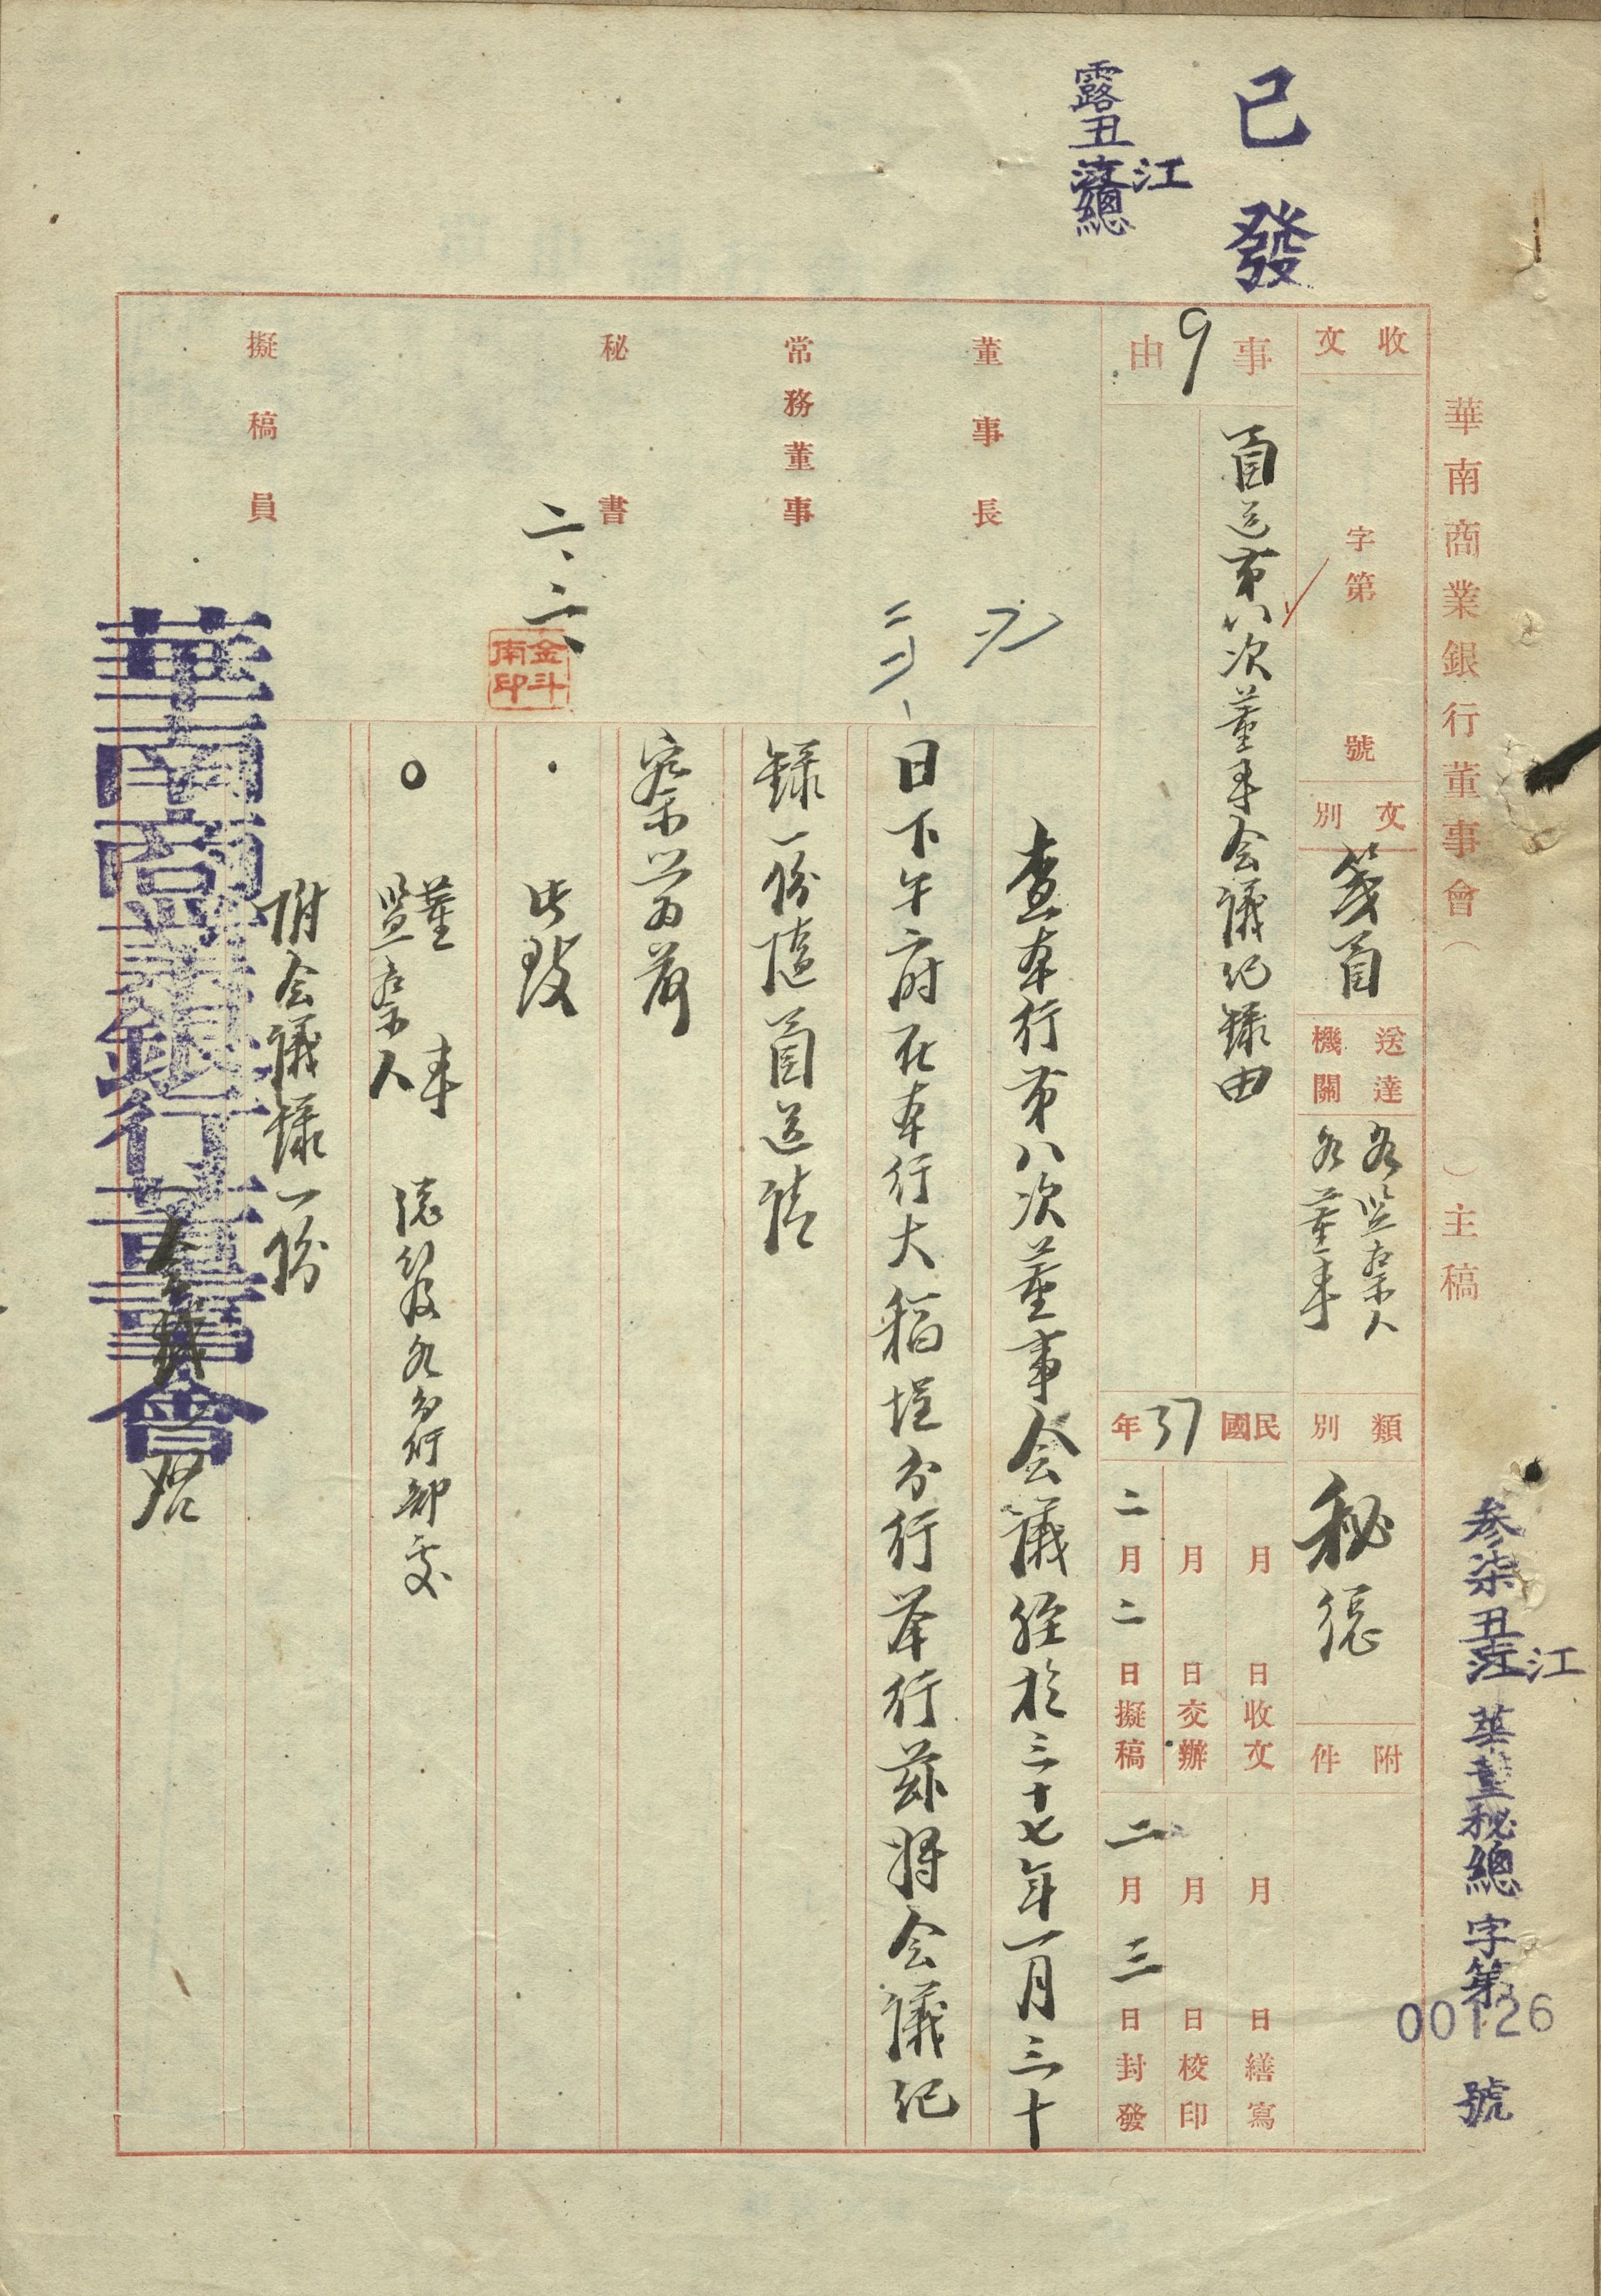 已發
露丑江總
華南商業銀行董事會（　）主稿
參柒丑江華董秘總字第00126號
收文　字第　號
文別　箋函
送達機關　各監察人
各董事
類別　秘總
附件
事由　函送第八次董事会議紀錄由
民國37年
月　日收文
月　日交辦
二月二日擬稿
月　日繕寫
月　日校印
二月三日封發
董事長
常務董事
秘書
二、二、
金斗南印
擬稿員
查本行第八次董事会議経於三十七年一月三十
日下午　在本行大稻埕分行举行茲將会議紀
錄一份隨函送請
察　為荷
此致
董事
監察人
附会議錄一份
華南商業銀行董事會　啓